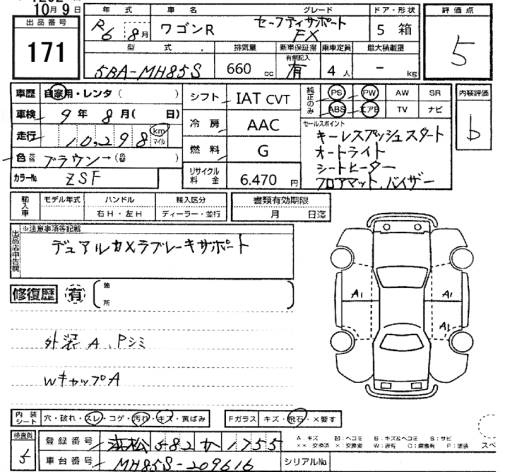 10月9日
出品番号
171
年式 車名 グレード ドア・形状
R6 8月 ワゴンR セーフティサポート FX 5 箱
型式 排気量 新車保証書 乗車定員 最大積載量
5BA-MH85S 660 cc 有 4人 - kg
評価点
5
車歴 自家用・レンタ( )
車検 9年8月( 日)
走行 10,298 km マイル
色 ブラウン→
カラーNo. ZSF
シフト IAT CVT
冷房 AAC
燃料 G
リサイクル料金 6,470円
純正のみ PS PW AW SR
ABS エアB TV ナビ
セールスポイント
キーレスプッシュスタート
オートライト
シートヒーター
フロアマット、バイザー
内装評価
b
輸入車 モデル年式 ハンドル 輸入区分
年 右H・左H ディーラー・並行
書類有効期限
月 日迄
※注意事項等記載
デュアルカメラブレーキサポート
修復歴 有 箇所
A1 A1
外装A、Pシミ
WキャップA
内装シート 穴・破れ・スレ・コゲ・汚れ・キズ・黄ばみ
Fガラス キズ・飛石・×要す
検査員
5
登録番号 浜松582か1755
車台番号 MH85S-209616
シリアルNo.